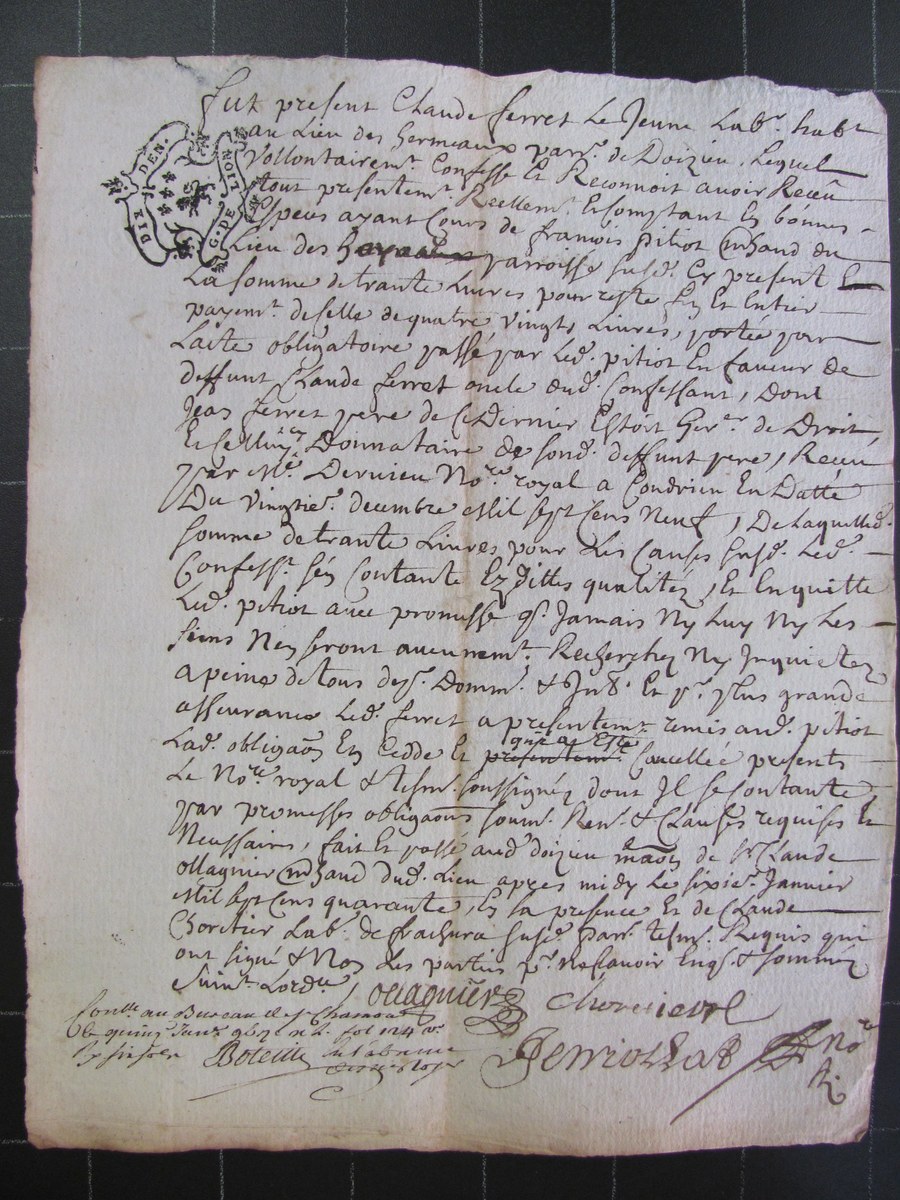 Fut present Claude ferret Le Jeune Labr. habt
au Lieu des hermeaux parr. de Doizieu, Lequel
Vollontairemt. Confesse Et Reconnoit avoir Receu
tout presentemt. Reellemt. Et Comptant En bonnes
Especes ayant Cours de francois pitiot Mchand du
Lieu des parroisse susd. Cy present Et
La somme de trante Livres pour reste fin Et Entier
payemt. de selle de quatre vingts Livres, portée par
Lacte obligatoire passé par Led. pitiot En faveur de
deffunt Claude ferret oncle dud. Confessant, Dont
Jean ferret pere de Ce Dernier Estoit herer. de Droit,
Et Celluy cy Donnataire de sond. deffunt pere, Receu
par Me. Dervieu Nore. royal a Condrieu En Datte
Du vingtie. decembre Mil sept Cens Neuf, De Laquelled.
somme de trante Livres pour Les Causes susd. Led.
Confesst. sen Contante Esdittes qualités, Et En quitte
Led. pitiot avec promesse q. Jamais Ny Luy Ny Les
siens Nen seront aucunemt. Recherchez Ny Inquietez
a peine de tous desp. Domm. & Int. Et pr. plus grande
asseurance Led. ferret a presentemt. remis aud. pitiot
Lad. obligaon En Cedde Et que a Esté presentemt. Cancellée presents
Le Nore. royal & tesm. soussignez dont Il se Contante
par promesses obligaons soum. Ren. & Clauses requises Et
Neussaires, fait Et passé aud. doizieu maon de sr. Claude
ollagnier Mchand dud. Lieu apres midy Le sixie. Janvier
Mil sept Cens quarante, En la presence Et de Claude
Choretier Labr. de frachura susd. parr. tesm. Requis qui
ont signé & Non Les parties pr. ne scavoir Enqs. & sommez
suivt. Lordce.
ollagnier Chorretier
Conlle. au Bureau de St Chamond
Le quinze Janv. 
Boteille
DIX DEN.
G. DE LION